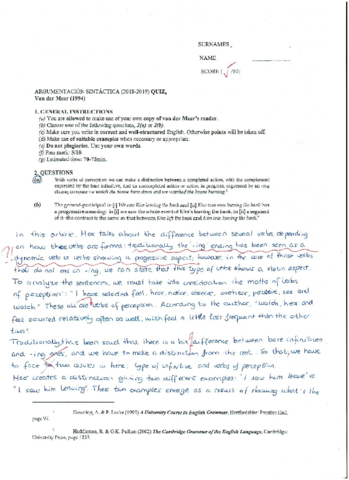 SURNAMES
NAME
SCORE ( /10)
ARGUMENTACIÓN SINTÁCTICA (2018-2019) QUIZ,
Van der Meer (1994)
1. GENERAL INSTRUCTIONS
(a) You are allowed to make use of your own copy of van der Meer's reader.
(b) Choose one of the following questions, 2(a) or 2(b).
(c) Make sure you write in correct and well-structured English. Otherwise points will be taken off.
(d) Make use of suitable examples when necessary or appropriate.
(e) Do not plagiarize. Use your own words.
(f) Pass mark: 5/10
(g) Estimated time: 70-75min.
2. QUESTIONS
(a) With verbs of perception we can make a distinction between a completed action, with the complement expressed by the bare infinitive, and an uncompleted action or action in progress, expressed by an -ing
(b) The gerund-participial in [i] We saw Kim leaving the bank and [ii] Kim was seen leaving the bank has a progressive meaning: in [i] we saw the whole event of Kim's leaving the bank, in [ii]
In this article, Mee talks about the difference between several verbs depending
on how these verbs are formed: traditionally the -ing ending has been seen as a
dynamic verb or verbs showing a progressive aspect; however, in the case of those verbs
that do not end in -ing, we can state that this type of verbs shows a static aspect.
To analyse the sentences, we must take into consideration the maths of verbs
of perception: "I have selected feel, hear, notice, observe, overhear, perceive, see and
watch". These all are verbs of perception. According to the author, "watch, hear and
feel occurred relatively often as well, with feel a little less frequent than the other
two".
Traditionally has been said that there is a big difference between bare infinitives
and -ing ones, and we have to make a distinction from the rest. So that, we have
to face two issues in here: type of infinitive and verbs of perception.
Mee creates a distinction giving two different examples: "I saw him leave" vs
"I saw him leaving". These two examples emerge as a result of showing what's the
Downing, A. & P. Locke (1992) A University Course in English Grammar, Hertfordshire: Prentice Hall,
page
Huddleston, R. & G.K. Pullum (2002) The Cambridge Grammar of the English Language, Cambridge:
University Press, page 1237.